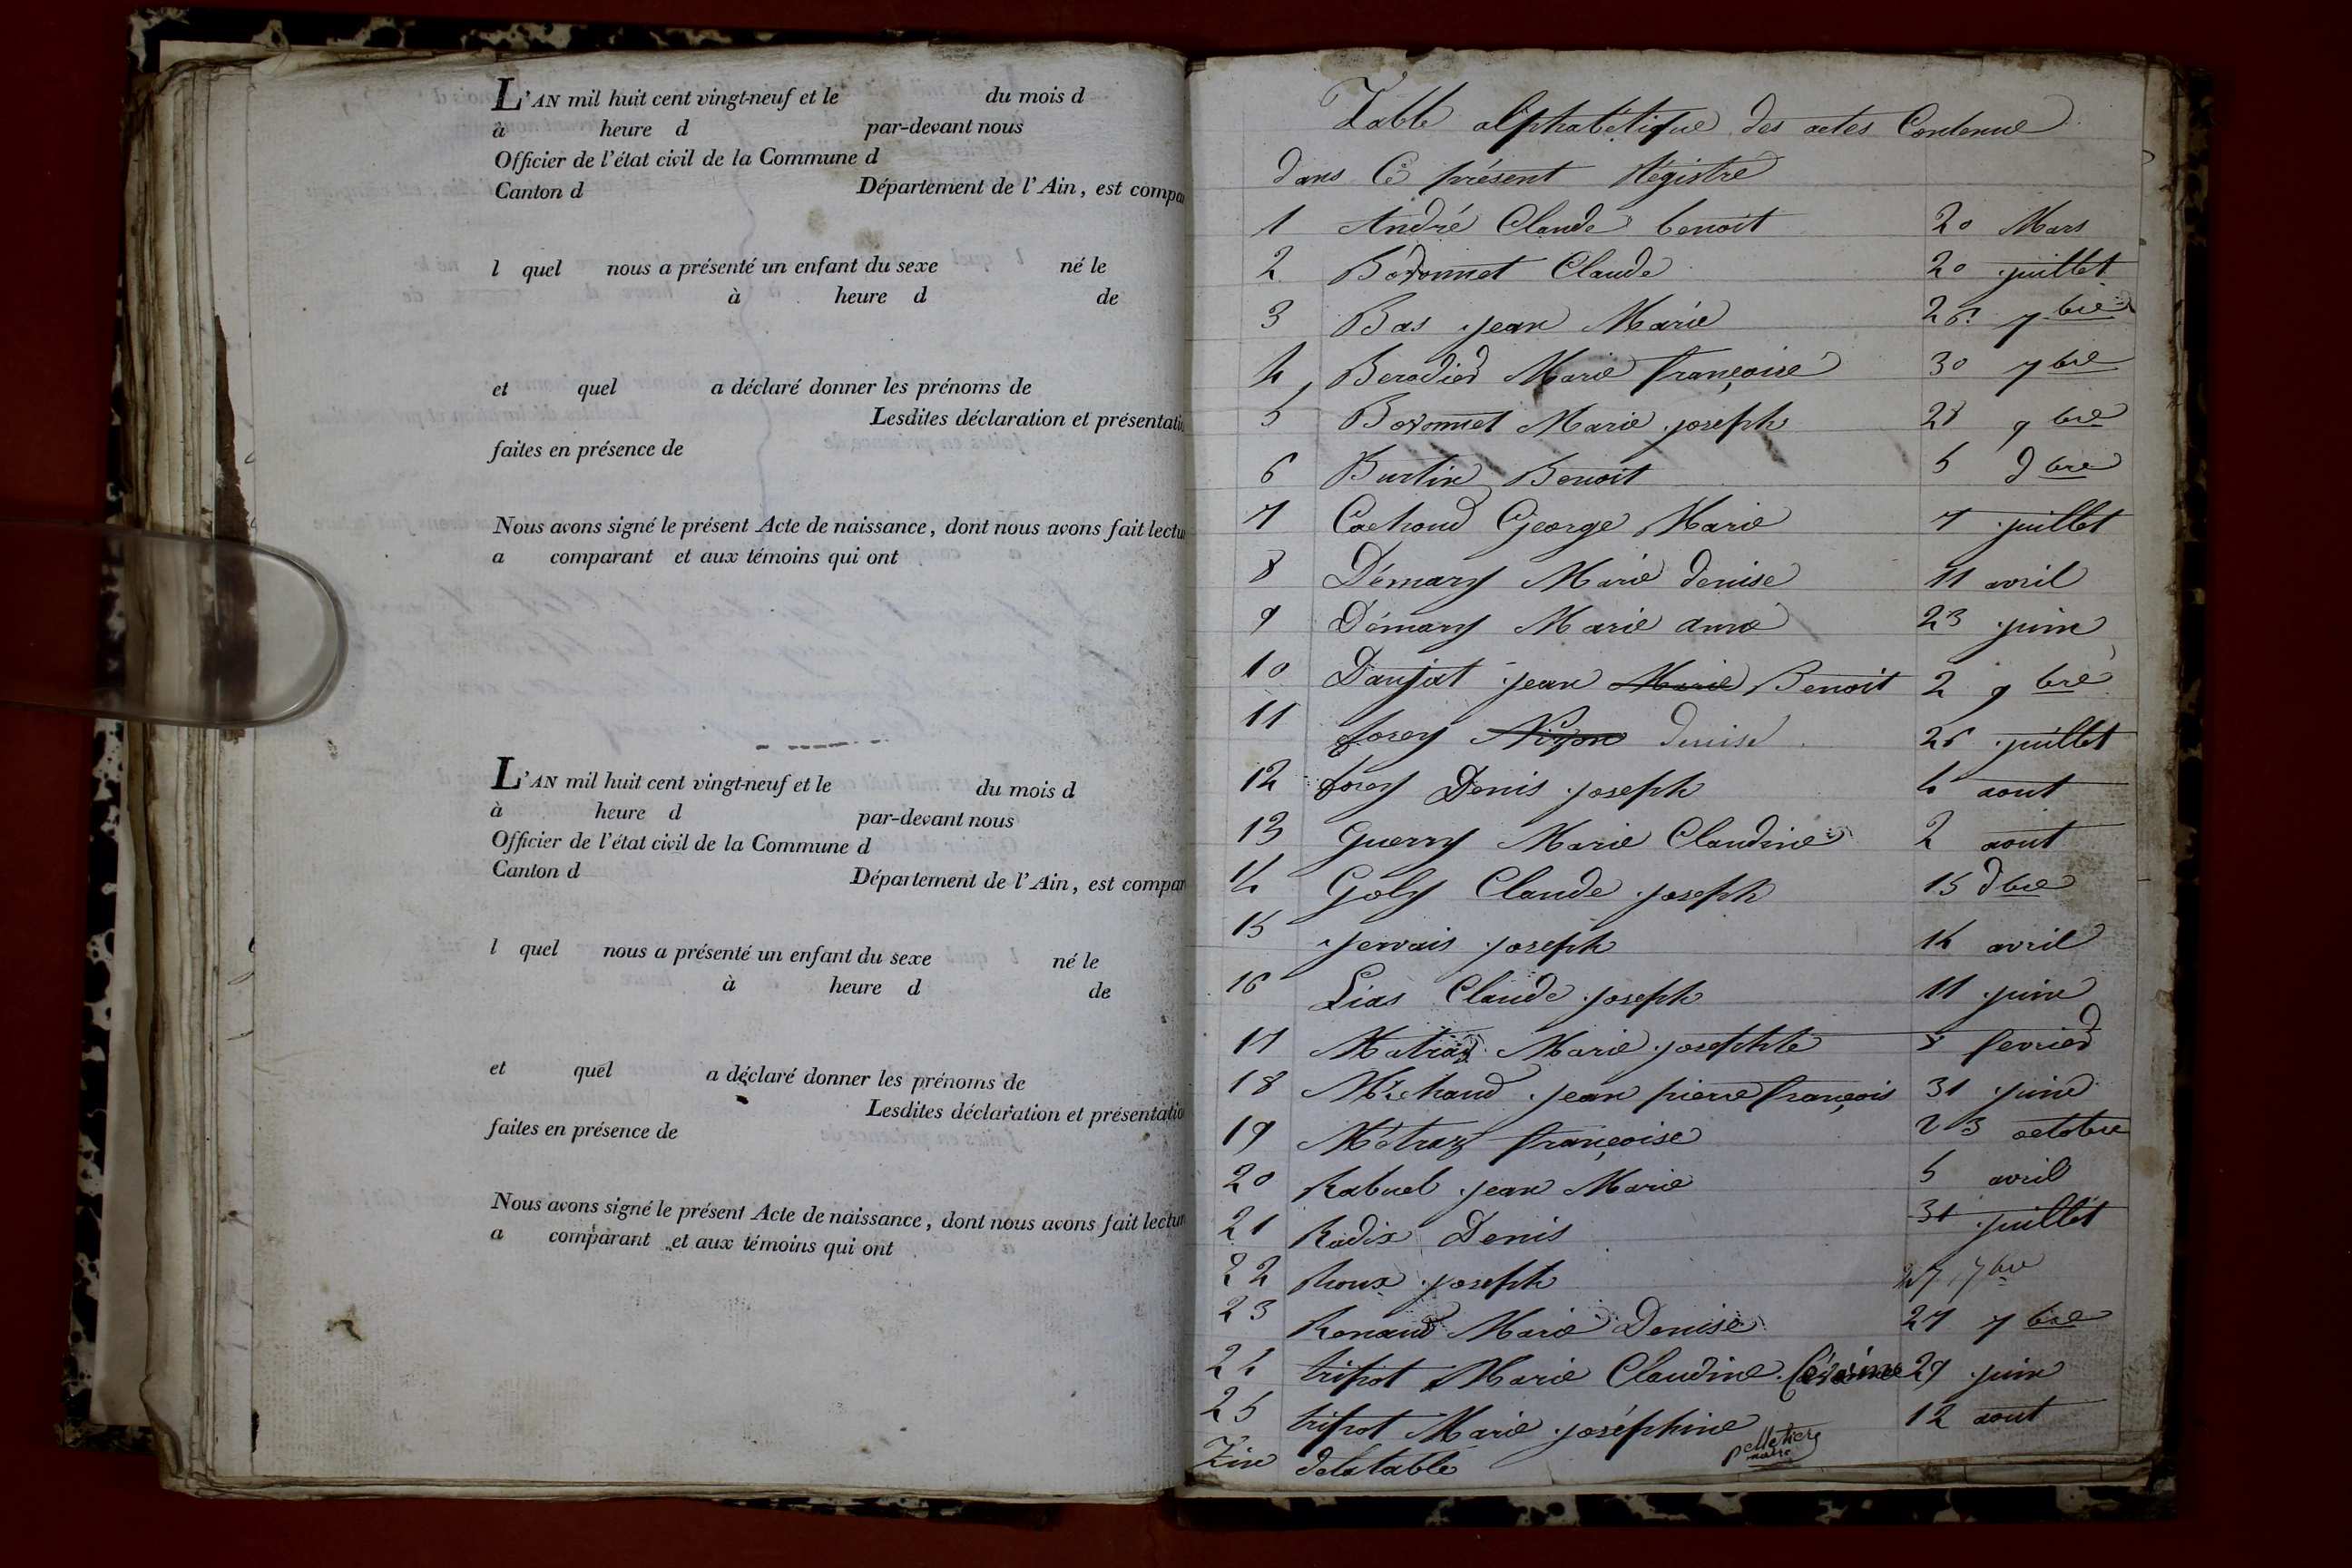 L'AN mil huit cent vingt-neuf et le du mois d
à heure d par-devant nous
Officier de l'état civil de la Commune d
Canton d Département de l'Ain, est compa
l quel nous a présenté un enfant du sexe né le
à heure d de
et quel a déclaré donner les prénoms de
Lesdites déclaration et présentati
faites en présence de
Nous avons signé le présent Acte de naissance, dont nous avons fait lectu
a comparant et aux témoins qui ont
L'AN mil huit cent vingt-neuf et le du mois d
à heure d par-devant nous
Officier de l'état civil de la Commune d
Canton d Département de l'Ain, est compar
l quel nous a présenté un enfant du sexe né le
à heure d de
et quel a déclaré donner les prénoms de
Lesdites déclaration et présentatio
faites en présence de
Nous avons signé le présent Acte de naissance, dont nous avons fait lectur
a comparant et aux témoins qui ont
Table alphabétique des actes Contenue
dans Ce présent Régistre
1 André Claude benoit 20 Mars
2 Claude 20 juillet
3 Bas jean Marie 26 7bre
4 Berodier Marie françoise 30 7bre
5 Marie joseph 28 9bre
6 Burtin Benoit 5 dbre
7 Cochoud George Marie 7 juillet
8 Démary Marie denise 11 avril
9 Démary Marie anne 23 juin
10 Danjat jean Marie Benoit 2 9bre
11 forey denise 26 juillet
12 forey Denis joseph 4 aout
13 Guerry Marie Claudine 2 aout
14 Goly Claude joseph 15 dbre
15 jervais joseph 14 avril
16 Lias Claude joseph 11 juin
17 Marie josephte 8 fevrier
18 jean pierre françois 31 juin
19 Métraz françoise 23 octobre
20 Rabuel jean Marie 5 avril
21 Rodix Denis 31 juillet
22 Roux joseph 27 7bre
23 Renaud Marie Denise 27 7bre
24 tripot Marie Claudine 29 juin
25 tripot Marie joséphine 12 aout
Fin delatable
pelletier
maire